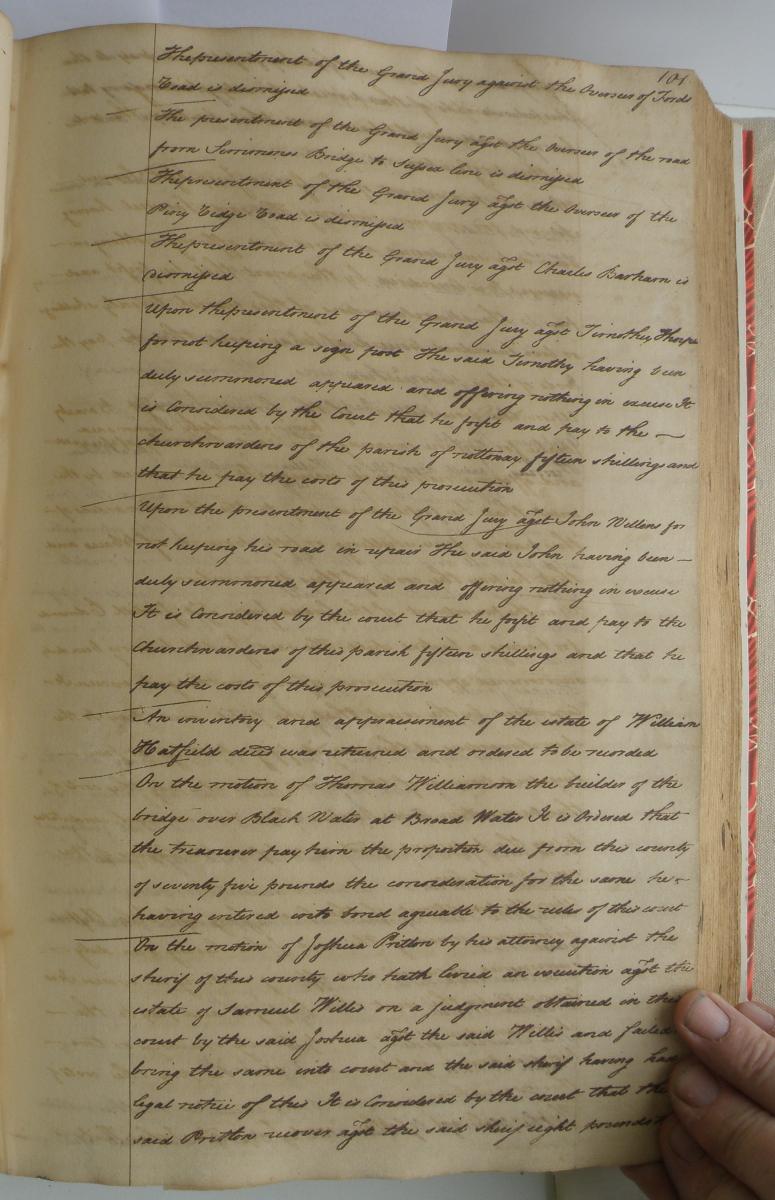 101
The presentment of the Grand Jury against the Overseer of Fords
Road is dismissed
The presentment of the Grand Jury agst the Overseer of the road
from Simmons Bridge to Sussex line is dismissed
The presentment of the Grand Jury agst the Overseer of the
Piney Ridge Road is dismissed
The presentment of the Grand Jury agst Charles Barham is
dismissed
Upon the presentment of the Grand Jury agst Timothy Thorpe
for not keeping a sign post The said Timothy having been
duly summoned appeared and offering nothing in excuse It
is Considered by the Court that he forfit and pay to the
churchwardens of the parish of nottoway fifteen shillings and
that he pay the costs of this prosecution
Upon the presentment of the Grand Jury agst John Willens for
not keeping his road in repair The said John having been
duly summoned appeared and offering nothing in excuse
It is Considered by the court that he forfit and pay to the
Churchwardens of this parish fifteen shillings and that he
pay the costs of this prosecution
An inventory and appraisement of the estate of William
Hatfield decd was returned and ordered to be recorded
On the motion of Thomas Williamson the builder of the
bridge over Black Water at Broad Water It is Ordered that
the treasurer pay him the proportion due from this county
of seventy five pounds the consideration for the same he
having entered into bond agreable to the rules of this court
On the motion of Joshua Pritlon by his attorney against the
sherif of this county who hath levied an execution agst the
estate of Samuel Willis on a judgment obtained in this
court by the said Joshua agst the said Willis and failed
bring the same into court and the said sherif having had
legal notice of this It is Considered by the court that the
said Pritlon recover agst the said sherif eight pounds